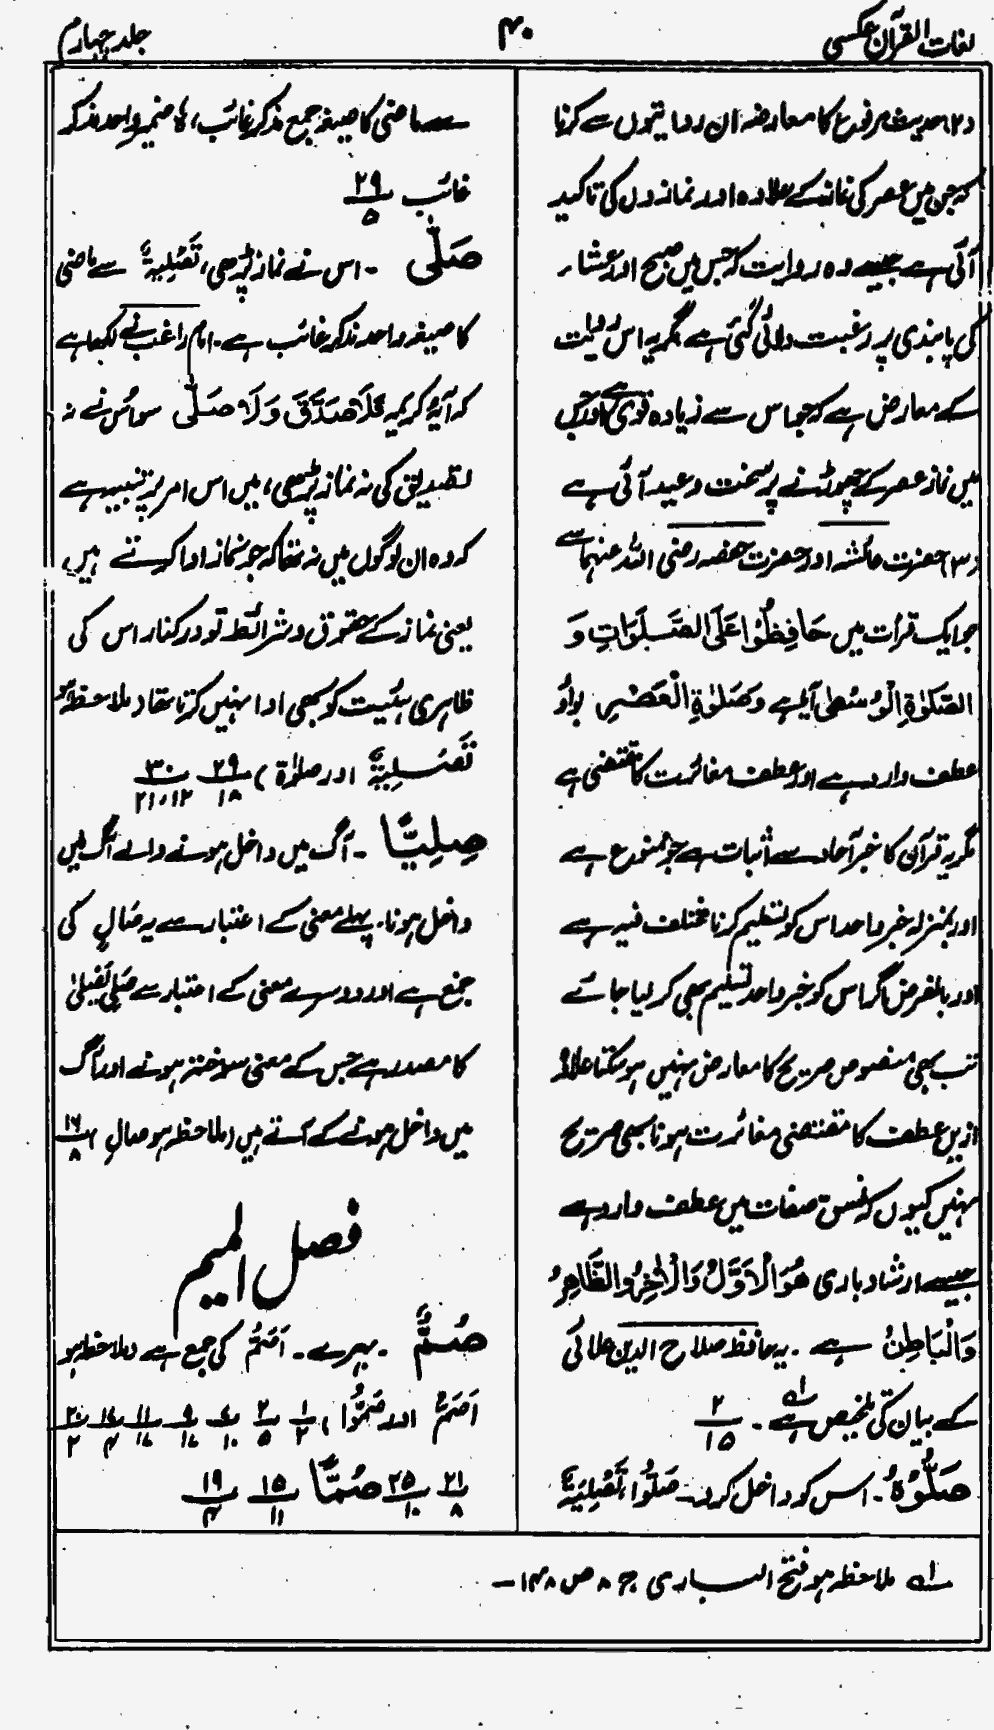 لغات القرآن عکسی
۴۰
جلد چہارم
(۲) حدیث مرفوع کا معارضہ ان روایتوں سے کرنا
کہ جن میں عصر کی نماز کے علاوہ اور نمازوں کی تاکید
آئی ہے جیسے وہ روایت کہ جس میں صبح اور عشار
کی پابندی پر رغبت دلائی گئی ہے مگر یہ اس روایت
کے معارض ہے کہ جو اس سے زیادہ قوی ہے اور جس
میں نماز عصر کے چھوڑنے پر سخت وعید آئی ہے
(۳) حضرت عائشہ اور حضرت حفصہ رضی اللہ عنہما سے
جو ایک قرأت میں حَافِظُوْا عَلَى الصَّلَوَاتِ وَ
الصَّلوٰةِ الْوُسْطٰى آیا ہے وَصَلوٰةِ الْعَصْرِ بواؤ
عطف وارد ہے اور عطف مغائرت کا مقتضی ہے
مگر یہ قرآن کا خبر آحاد سے اثبات ہے جو ممنوع ہے
اور بمنزلہ خبر واحد اس کو تسلیم کرنا مختلف فیہ ہے
اور بالفرض اگر اس کو خبر واحد تسلیم بھی کر لیا جائے
تب بھی منصوص صریح کا معارض نہیں ہو سکتا علاوہ
ازیں عطف کا مقتضی مغائرت ہونا بھی صریح
نہیں کیوں کہ نسق صفات میں عطف وارد ہے
جیسے ارشاد باری هُوَ الْاَوَّلُ وَالْاٰخِرُ وَالظَّاهِرُ
وَالْبَاطِنُ ہے ۔ یہ حافظ صلاح الدین علائی
کے بیان کی تلخیص ہے لہ ۔ ۲/۱۵
صَلُّوْهُ ۔ اس کو داخل کرو۔ صَلُّوْا، تَصْلِيَةٌ
سے ماضی کا صیغہ جمع مذکر غائب، ہٗ ضمیر واحد مذکر
غائب ۲۹/۵
صَلّٰى ۔ اس نے نماز پڑھی، تَصْلِيَةٌ سے ماضی
کا صیغہ واحد مذکر غائب ہے۔ امام راغب نے لکھا ہے
کہ آیۂ کریمہ فَلَا صَدَّقَ وَلَا صَلّٰى سو اُس نے نہ
تصدیق کی نہ نماز پڑھی، میں اس امر پر تنبیہ ہے
کہ وہ ان لوگوں میں نہ تھا کہ جو نماز ادا کرتے ہیں
یعنی نماز کے حقوق و شرائط تو درکنار اس کی
ظاہری ہیئیت کو بھی ادا نہیں کرتا تھا (ملاحظہ ہو
تَصْلِيَةٌ اور صلوٰة) ۲۹/۱۸ ۳۰/۲۱،۱۲
صِلِيًّا ۔ آگ میں داخل ہونے والے آگ میں
داخل ہونا۔ پہلے معنی کے اعتبار سے یہ صَالٍ کی
جمع ہے اور دوسرے معنی کے اعتبار سے صَلِیَ یَصْلیٰ
کا مصدر ہے جس کے معنی سوختہ ہونے اور آگ
میں داخل ہونے کے آتے ہیں (ملاحظہ ہو صالِ) ۱۶/۸
فصل المیم
صُمٌّ ۔ بہرے ۔ اَصَمُّ کی جمع ہے (ملاحظہ ہو
اَصَمُّ اور صَمُّوْا) ۱/۲ ۲/۵ ۷/۱۰ ۹/۱۷ ۱۱/۱۷ ۱۷/۴ ۲۰/۲
۲۱/۸ ۲۵/۱۰ صُمًّا ۱۵/۱۱ ۱۹/۴
لہ ملاحظہ ہو فتح الباری ج ۸ ص ۱۴۸ ـ